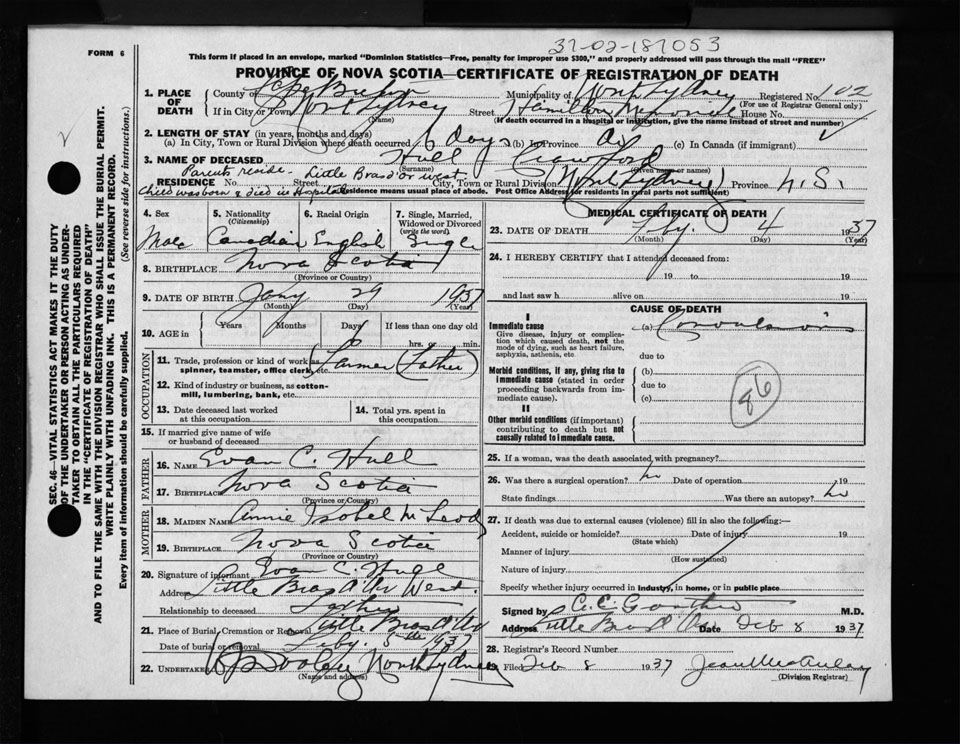 31-02-187053
FORM 6
This form if placed in an envelope, marked "Dominion Statistics—Free, penalty for improper use $300," and properly addressed will pass through the mail "FREE"
PROVINCE OF NOVA SCOTIA—CERTIFICATE OF REGISTRATION OF DEATH
1. PLACE OF DEATH
County of Cape Breton Municipality of North Sydney Registered No. 102
(For use of Registrar General only)
If in City or Town North Sydney Street Hamilton Memorial House No.
(Name) (If death occurred in a Hospital or institution, give the name instead of street and number)
2. LENGTH OF STAY (in years, months and days)
(a) In City, Town or Rural Division where death occurred 6 days (b) In Province (c) In Canada (if immigrant)
3. NAME OF DECEASED Hull Crawford
(Surname) (Given name or names)
Parents reside - Little Bras d'or west.
RESIDENCE No. Street City, Town or Rural Division (North Sydney) Province N.S.
Child was born & died in Hospital Residence means usual place of abode. Post Office Address for residents in rural parts not sufficient)
4. Sex 5. Nationality 6. Racial Origin 7. Single, Married, Widowed or Divorced
(Citizenship) (write the word)
Male Canadian English Single
8. BIRTHPLACE Nova Scotia
(Province or Country)
9. DATE OF BIRTH Jany 29 1937
(Month) (Day) (Year)
10. AGE in Years Months Days If less than one day old
6 hrs. or min.
OCCUPATION
11. Trade, profession or kind of work as spinner, teamster, office clerk, etc. Farmer (Father)
12. Kind of industry or business, as cotton-mill, lumbering, bank, etc.
13. Date deceased last worked at this occupation
14. Total yrs. spent in this occupation
15. If married give name of wife or husband of deceased
FATHER
16. NAME Evan C. Hull
17. BIRTHPLACE Nova Scotia
(Province or Country)
MOTHER
18. MAIDEN NAME Annie Isobel McLeod
19. BIRTHPLACE Nova Scotia
(Province or Country)
20. Signature of informant Evan C. Hull
Address Little Bras d'Or West.
Relationship to deceased Father
21. Place of Burial, Cremation or Removal Little Bras d'Or
Date of burial or removal Feby 5th 1937
22. UNDERTAKER North Sydney
(Name and address)
MEDICAL CERTIFICATE OF DEATH
23. DATE OF DEATH Feby. 4 1937
(Month) (Day) (Year)
24. I HEREBY CERTIFY that I attended deceased from:
19 to 19
and last saw h alive on 19
CAUSE OF DEATH
I
Immediate cause (a) Convulsions
Give disease, injury or complication which caused death, not the mode of dying, such as heart failure, asphyxia, asthenia, etc.
due to
Morbid conditions, if any, giving rise to immediate cause (stated in order proceeding backwards from immediate cause).
(b)
due to
(c)
86
II
Other morbid conditions (if important) contributing to death but not causally related to immediate cause.
25. If a woman, was the death associated with pregnancy?
26. Was there a surgical operation? no Date of operation 19
State findings Was there an autopsy? no
27. If death was due to external causes (violence) fill in also the following:—
Accident, suicide or homicide? Date of injury 19
(State which)
Manner of injury
(How sustained)
Nature of injury
Specify whether injury occurred in industry, in home, or in public place
Signed by M.D.
Address Little Bras d'Or Date Feb 8 1937
28. Registrar's Record Number
29. Filed Feb 8 1937
(Division Registrar)
SEC. 46—VITAL STATISTICS ACT MAKES IT THE DUTY
OF THE UNDERTAKER OR PERSON ACTING AS UNDER-
TAKER TO OBTAIN ALL THE PARTICULARS REQUIRED
IN THE "CERTIFICATE OF REGISTRATION OF DEATH"
AND TO FILE THE SAME WITH THE DIVISION REGISTRAR WHO SHALL ISSUE THE BURIAL PERMIT.
WRITE PLAINLY WITH UNFADING INK. THIS IS A PERMANENT RECORD.
Every item of information should be carefully supplied. (See reverse side for instructions.)